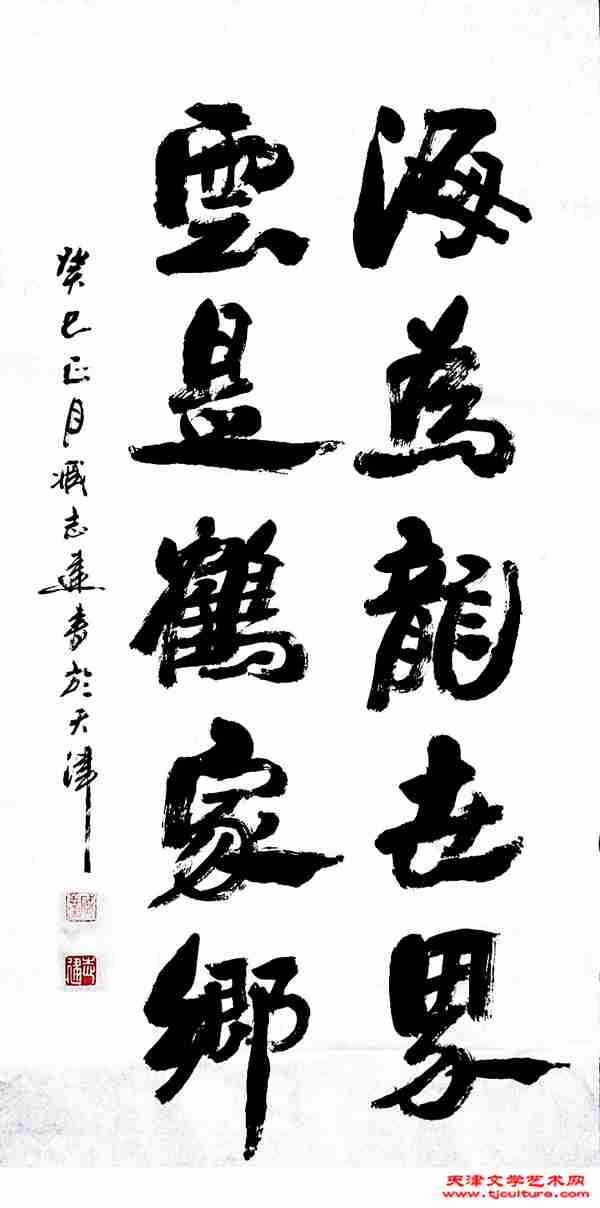 海為龍世界
雲是鶴家鄉
癸巳正月臧志建書於天津
志建
天津文学艺术网
www.tjculture.com